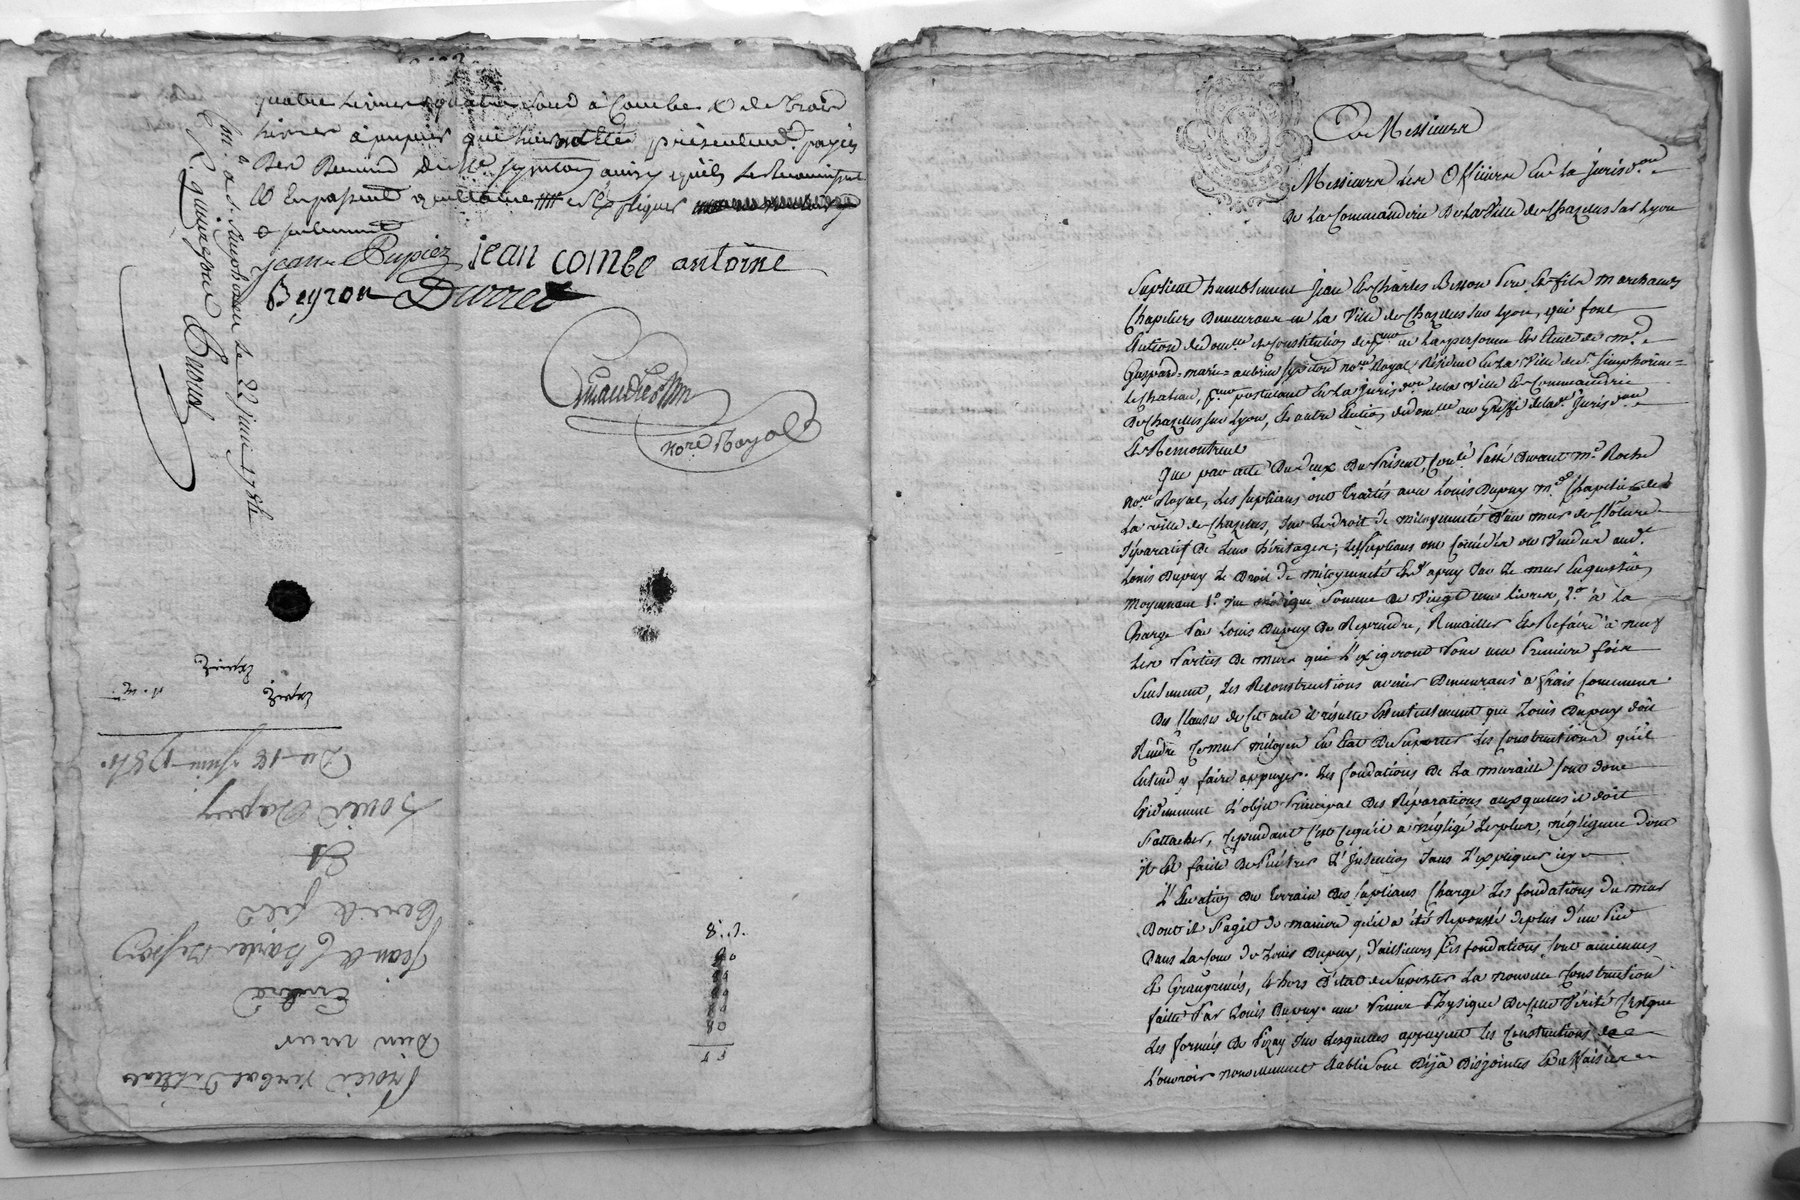 quatre livres quatre sous à Combe & de trois
livres à jean qui leur ont été présentemt. payés
des deniers du Me. syveton ainsy qu'ils le reconnaissent
& en passent quittance
& seulement
jean Dupiez jean combe antoine
Beyron Durret
nore. Royal
Con. a St. Simphorien le 22 juin 1784
Durret
Du 18 Juin 1784.
Louis Dupuy
Et
Pere & fils
Jean & Charles Besson
Entre
D'un mur
Procès verbal d'état
A Messieurs
Messieurs les Officiers en la Jurison.
de la Commanderie de la Ville de Chazelles sur Lyon
Suplient humblement Jean & Charles Besson Pere & fils marchands
Chapeliers Demeurans en la Ville de Chazelles sur Lyon, qui font
Election de dom.lle & Constitution de Pour. en la personne & Etude de Me.
Gaspard=marie=aubrin syveton nore. Royal Résident en la Ville de St. simphorien=
le Chateau, Pour. postulant en la Jurison. de la Ville & Commanderie
De Chazelles sur Lyon, & autre Election de dom.lle au Greffe de lade. Jurison.
& Remontrent
Que par acte Du deux Du Présent, Con.lé Passé devant Me. Roche
Nore. Royal, Les suplians ont Traités avec Louis Dupuy Md. Chapelier de
La ville de Chazelles, sur Le droit de mitoyenneté d'un mur de Cloture
Séparatif de Leurs héritages; Les suplians ont Concédés ou Vendus aud.
Louis Dupuy Le Droit de mitoyenneté & d'apuy sur Le mur En question
Moyennant 1o. Une modique Somme de Vingt une livres, 2o. à la
Charge Par Louis Dupuy De Reprendre, Remailler & Refaire à neuf
Les Parties De murs qui L'exigeront Pour une Premiere fois
Seulement, Les Reconstructions avenir Demeurans à frais Communs.
Des Clauses de Cet acte il résulte Essentiellement que Louis Dupuy doit
Rendre Le mur mitoyen En Etat De Suporter Les Constructions qu'il
Entend y faire appuyer. Les fondations De La muraille sont donc
Evidemment L'objet Principal Des Réparations auxquelles il doit
S'attacher, Cependant C'est Ce qu'il a négligé Le plus, négligence dont
il Est facile De Pénétrer L'Intention Sans L'expliquer icy
L'Elévation Du terrain Des Suplians Charge Les fondations Du mur
Dont il S'agit de maniere qu'il a été Repoussé de plus d'un Pied
Dans La Cour de Louis Dupuy, d'ailleurs Ses fondations sont anciennes
& Grangrenés, & hors d'état de Suporter La nouvelle Construction
faite Par Louis Dupuy. une Preuve Physique De Cette Vérité C'est que
Les formes De Pizay Sur Lesquelles appuyent Les Constructions de
L'ouvroir nouvellement établi Sont Déjà Disjointes